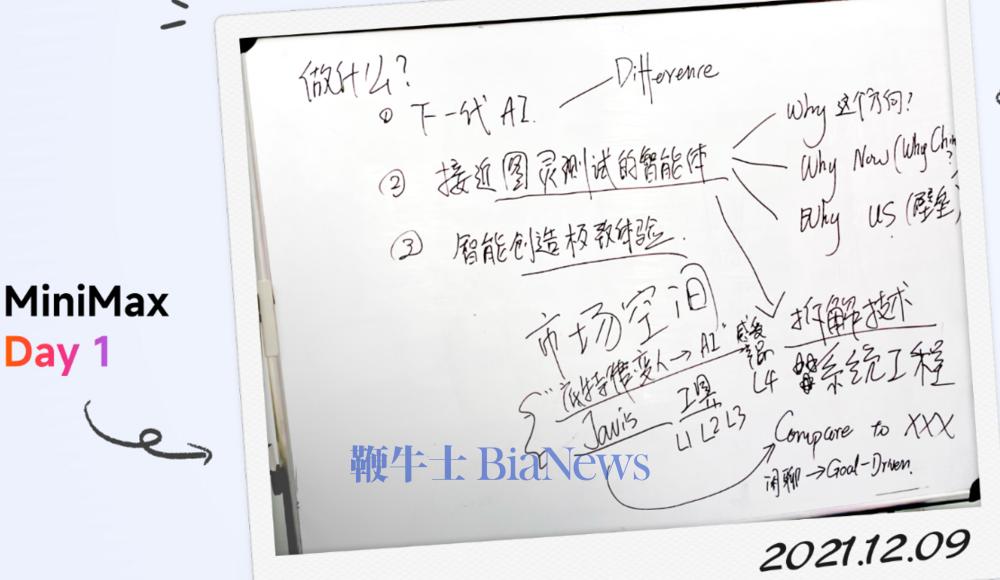 MiniMax
Day 1
做什么?
① 下一代 AI.
Difference
② 接近图灵测试的智能体
Why 这个方向?
Why Now (Why Chin
?
Why US (壁垒)
③ 智能创造极致体验.
市场空间
"底特律变人→AI"
Javis
工具
L1 L2 L3
L4
拆解技术
系统工程
Compare to XXX
闲聊→Goal-Driven.
鞭牛士 BiaNews
2021.12.09